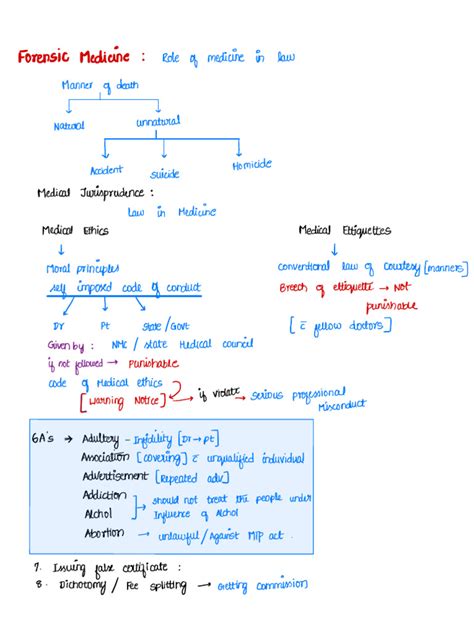 Forensic Medicine : Role of medicine in law
Manner of death
Natural unnatural
Accident suicide Homicide
Medical Jurisprudence :
Law in Medicine
Medical Ethics Medical Ettiquettes
Moral principles
self imposed code of conduct
conventional law of courtesy [manners]
Breach of etiquette → Not
punishable
Dr Pt State/Govt
[c̄ fellow doctors]
Given by : NMC / state Medical council
if not followed → Punishable
code of Medical ethics
[Warning Notice] → if violate → serious professional
Misconduct
6A's → Adultery - Infidility [Dr → pt]
Association [covering] c̄ unqualified individual
Advertisement [Repeated adv]
Addiction
Alchol
→ should not treat the people under
Influence of Alchol
Abortion → unlawful/Against MTP act.
7. Issuing false certificate :
8. Dichotomy / Fee splitting → Getting commission